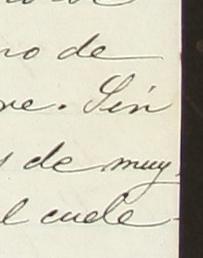 no de
re. Sin
s de muy
l cuele